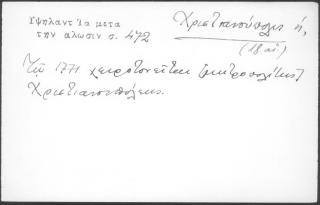 Ὑψηλαντ Ἰα μετα
την αλωσιν σ. 472
Χριστιανούπολις ἡ,
(18 αἰ.)
Τῷ 1771 χειροτονεῖται [μητροπολίτης]
Χριστιανουπόλεως.